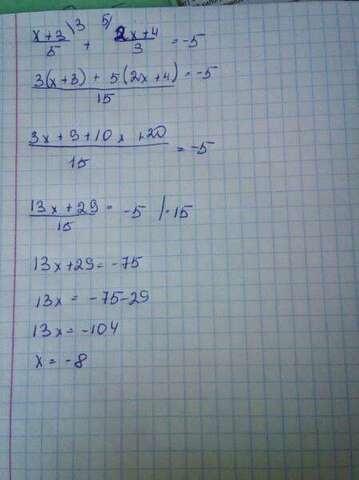 (x+3)/5 \3 + 5/ (2x+4)/3 = -5
(3(x+3) + 5(2x+4))/15 = -5
(3x+9+10x+20)/15 = -5
(13x+29)/15 = -5 /·15
13x+29 = -75
13x = -75-29
13x = -104
x = -8